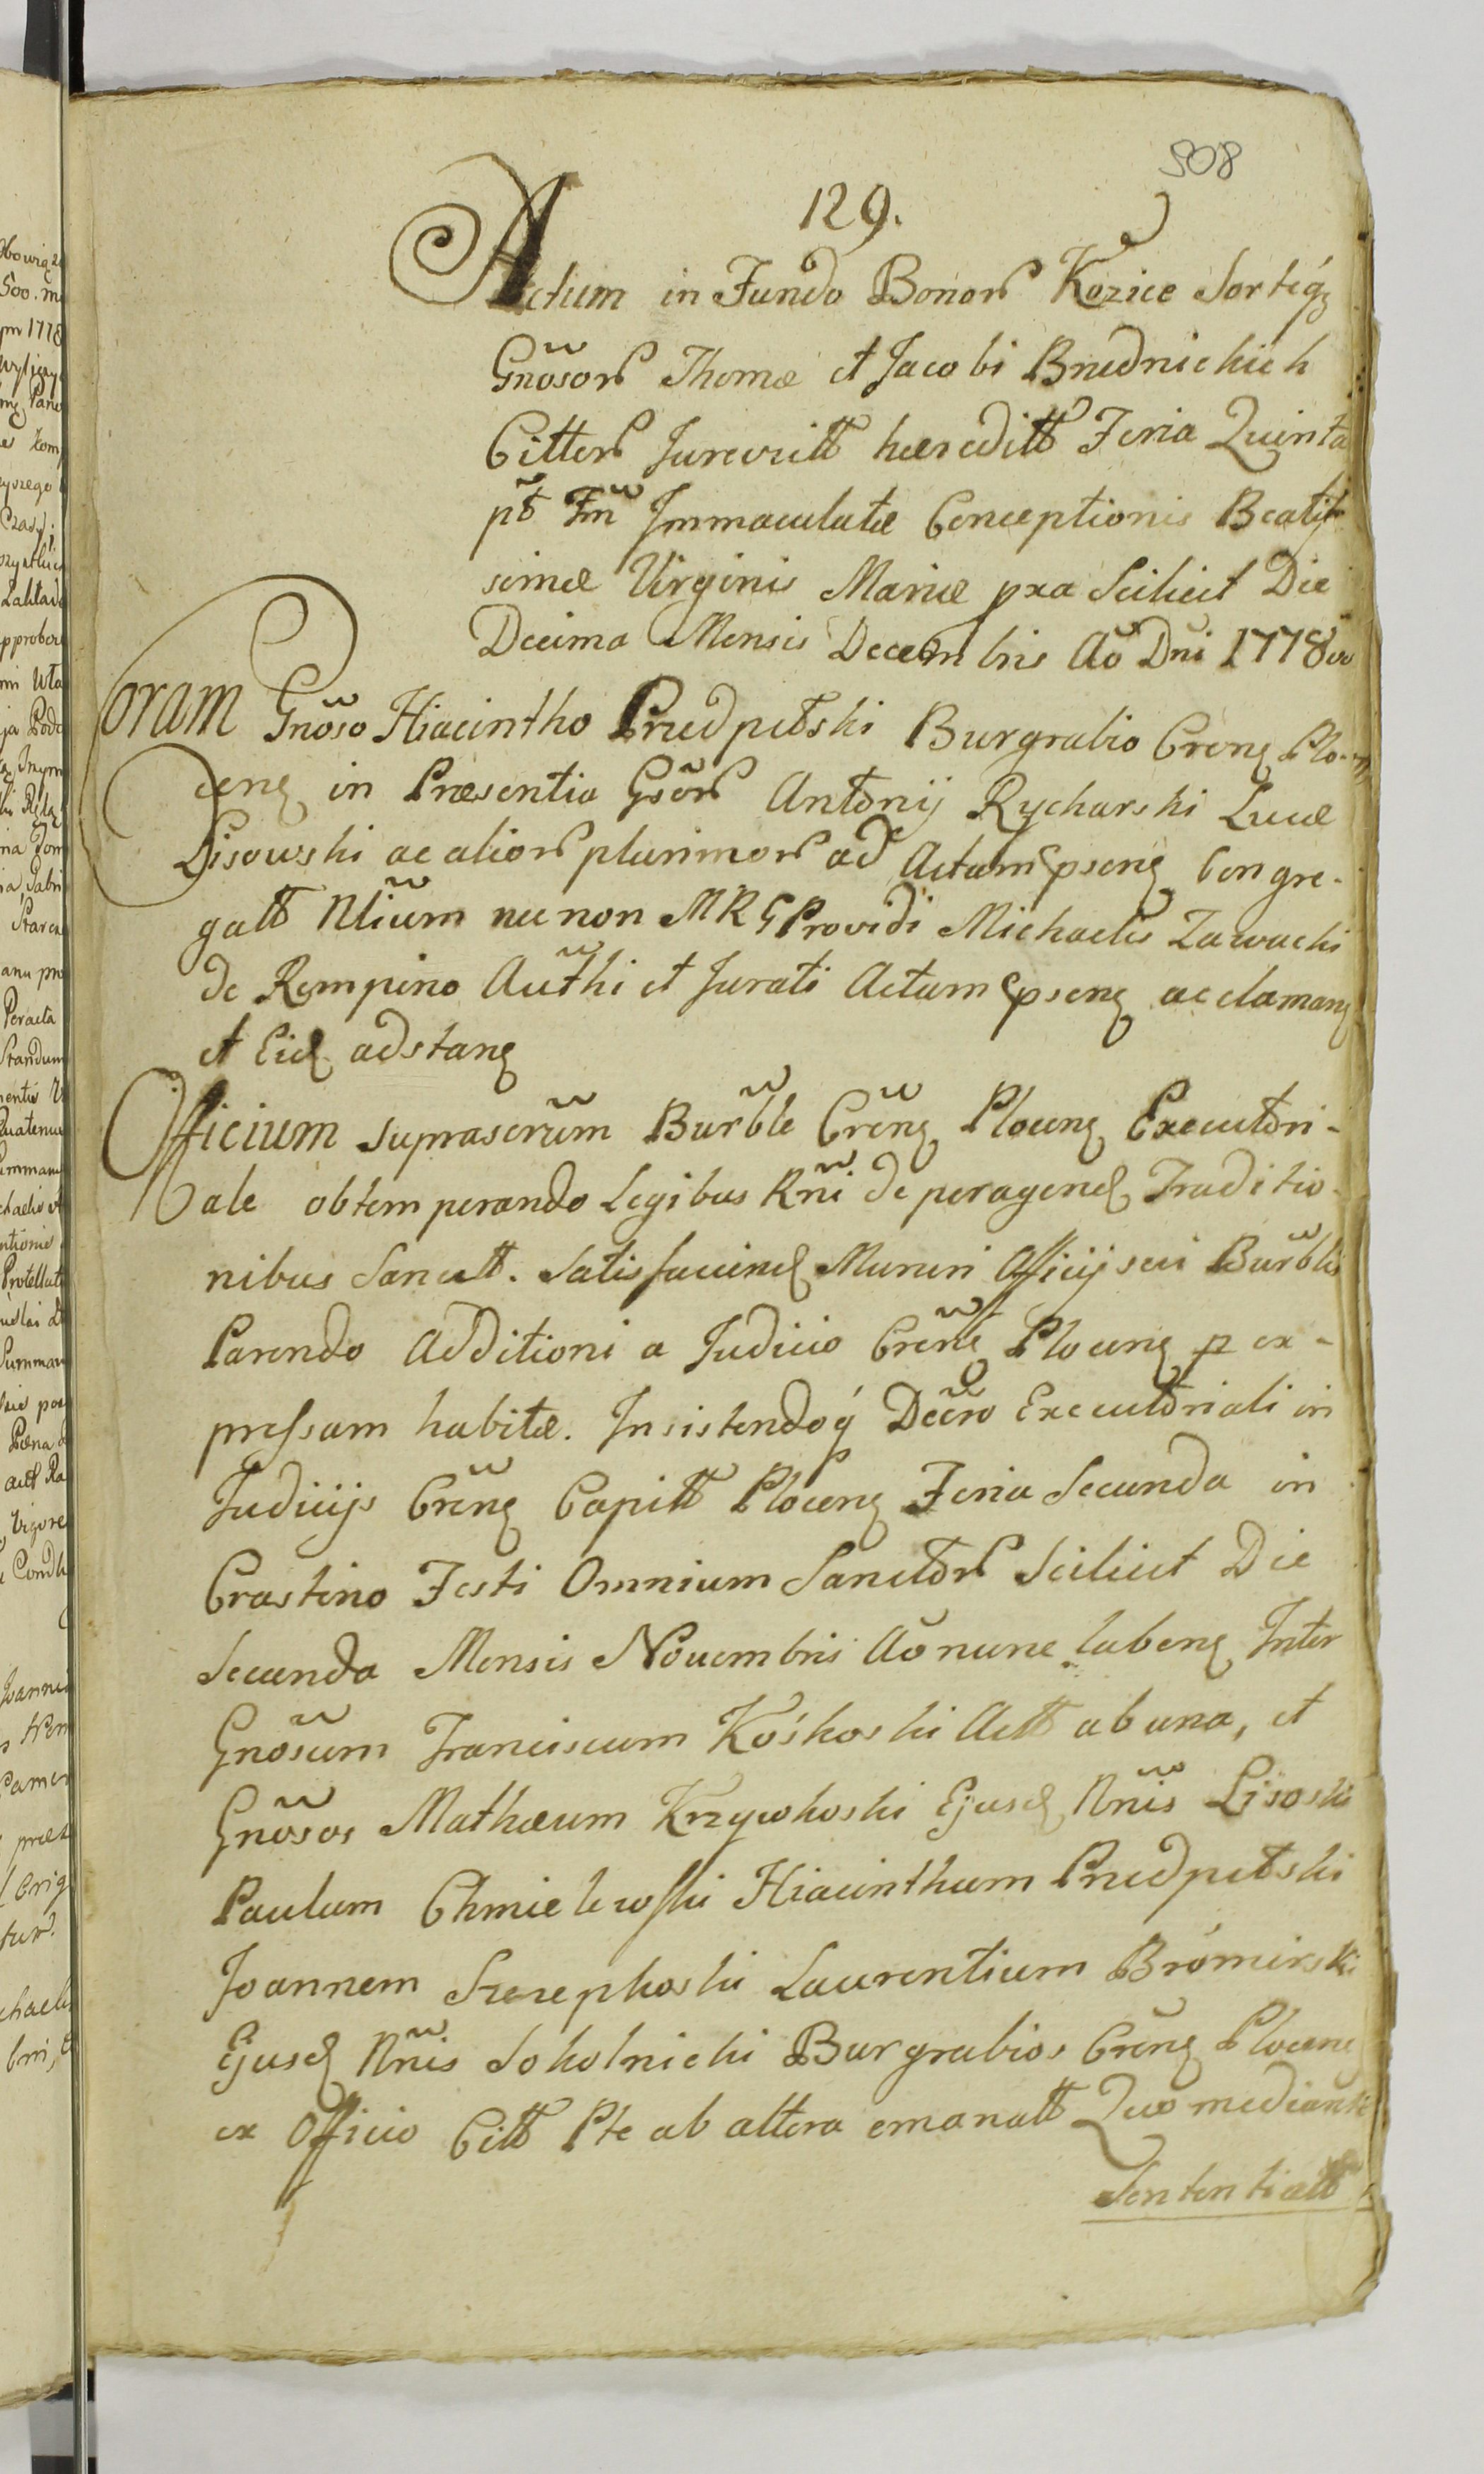 508
129.
Actum in Fundo Bonor Kozice Sortisq
Gnosor Thomæ et Jacobi Brudnickich
Citter Jurevictt hæreditt Feria Quinta
pt Fm Immaculatæ Conceptionis Beatis
simæ Virginis Mariæ pxa Scilicet Die
Decima Mensis Decembris Ao Dni 1778vo
Coram Gnoso Hiacintho Przedpełski Burgrabio Crens Plo-
cens in Præsentia Gsor Antonij Rycharski Lucæ
Lisowski ac alior plurimor ad Actum psens Congre-
gatt Nlium nec non MRG Providi Michaelis Zawacki
de Rempino Authi et Jurati Actum psens acclamans
et Eid adstans
Officium suprascrum Burble Crens Plocens Executori-
ale obtemperando Legibus Rni de peragend Traditio-
nibus Sancitt. Satisfaciend Muneri Officij sui Burblis
Parendo Additioni a Judicio Crens Plocens p ex-
pressam habitæ. Insistendoq Decro Executoriali in
Judicijs Crens Capitt Plocens Feria Secunda in
Crastino Festi Omnium Sanctor Scilicet Die
Secunda Mensis Novembris Ao nunc labens Inter
Gnosum Franciscum Kośkoski Actt ab una, et
Gnosos Mathæum Krzywkoski Ejusd Nnis Lisoski
Paulum Chmielewski Hiacinthum Przedpełski
Joannem Szczepkoski Laurentium Brómirski
Ejusd Nnis Sokolnicki Burgrabios Crens Plocens
ex Officio Citt Pte ab altera emanatt Quo mediante
Sententiatt